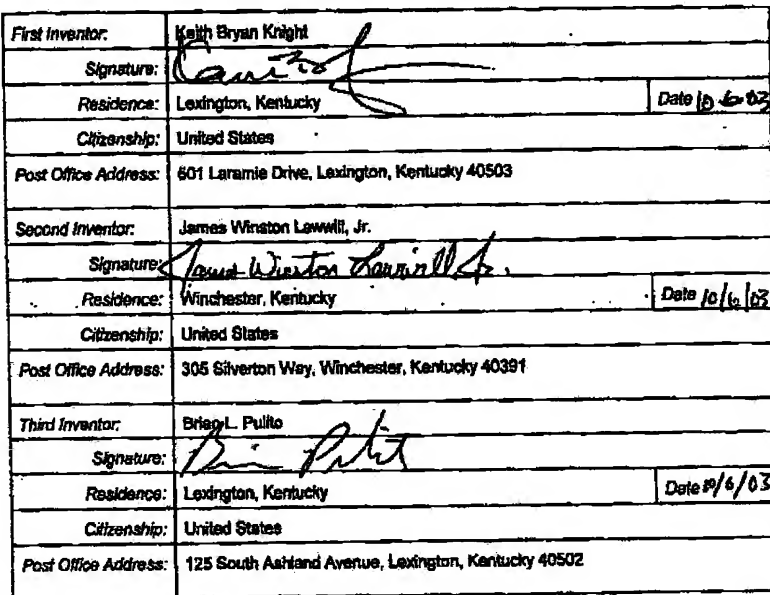 First Inventor: Keith Bryan Knight
Signature:
Residence: Lexington, Kentucky Date 10-6-03
Citizenship: United States
Post Office Address: 601 Laramie Drive, Lexington, Kentucky 40503
Second Inventor: James Winston Lawwill, Jr.
Signature: James Winston Lawwill Jr.
Residence: Winchester, Kentucky Date 10/6/03
Citizenship: United States
Post Office Address: 305 Silverton Way, Winchester, Kentucky 40391
Third Inventor: Brian L. Pulito
Signature: Brian Pulito
Residence: Lexington, Kentucky Date 10/6/03
Citizenship: United States
Post Office Address: 125 South Ashland Avenue, Lexington, Kentucky 40502